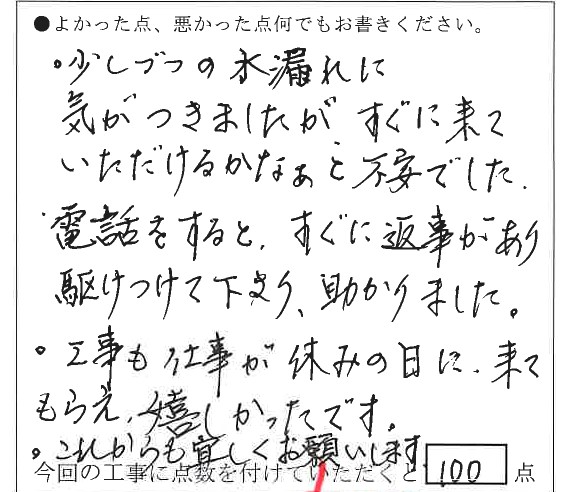 ●よかった点、悪かった点何でもお書きください。
。少しづつの水漏れに
気がつきましたがすぐに来て
いただけるかなぁと不安でした.
・電話をすると、すぐに返事があり
駆けつけて下さり、助かりました。
。工事も仕事が休みの日に、来て
もらえ、嬉しかったです。
。これからも宜しくお願いします
今回の工事に点数を付けていただくと 100 点